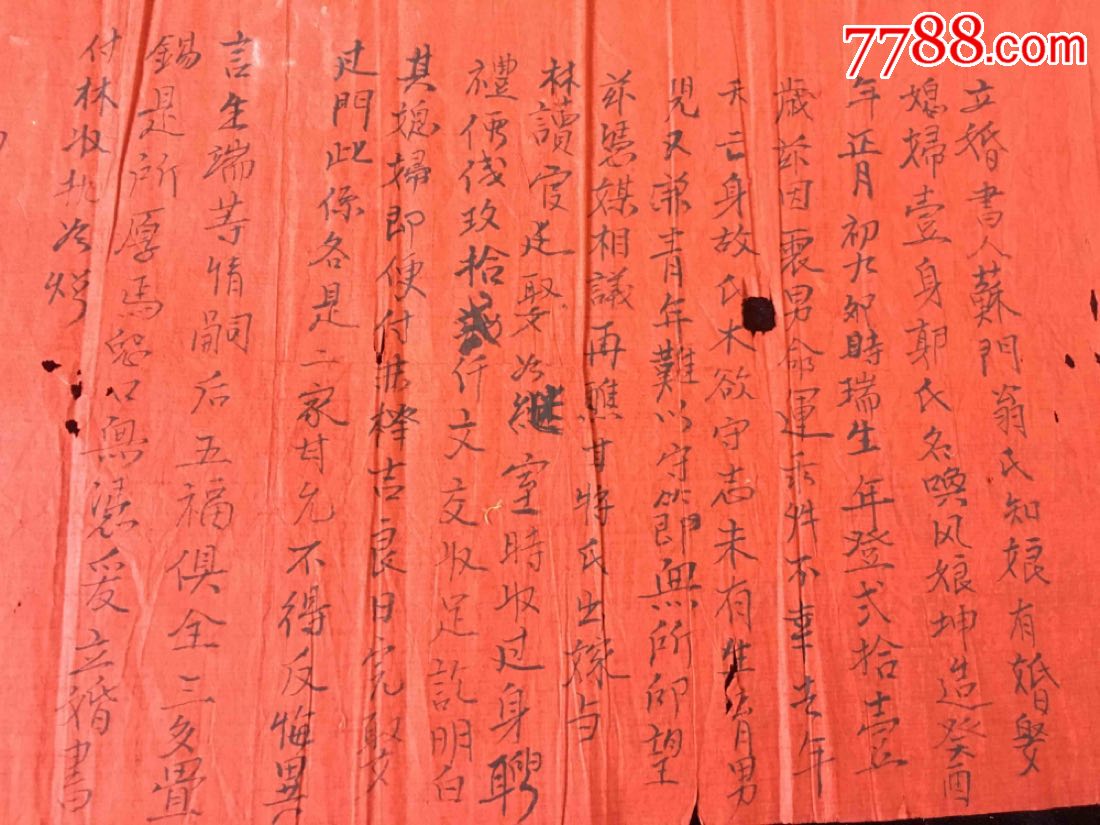 7788.com
立婚書人蘇門翁氏知娘有婚娶
媳婦壹身郭氏名喚风娘坤造癸酉
年正月初九卯時瑞生年登弍拾壹
歲茲因裏男命運乖舛不幸去年
夭亡身故氏本欲守志未有生育男
児又兼青年難以守節無所仰望
茲憑媒相議再醮才將氏出嫁与
林讀官迋娶為継室時收过身聘
禮佛伐玫拾弍仟文交收足訖明白
其媳婦即便付擇吉良日完娶
过門此係各是二家甘允不得反悔異
言生端等情嗣后五福俱全三多疊
錫是所厚焉恐口無憑爰立婚書
付林收执為炤